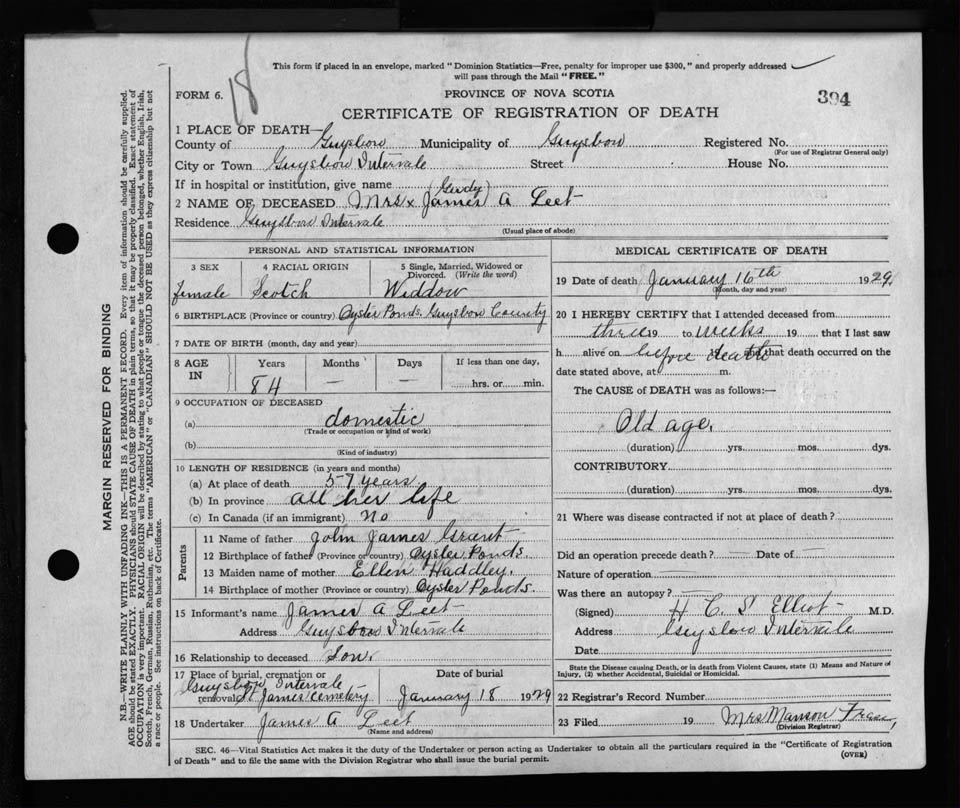 18
This form if placed in an envelope, marked "Dominion Statistics—Free, penalty for improper use $300," and properly addressed
will pass through the Mail "FREE."
FORM 6.
PROVINCE OF NOVA SCOTIA
394
CERTIFICATE OF REGISTRATION OF DEATH
1 PLACE OF DEATH—
County of Guysboro Municipality of Guysboro Registered No.
(For use of Registrar General only)
City or Town Guysboro Intervale Street House No.
If in hospital or institution, give name
2 NAME OF DECEASED Mrs James A Leet
Residence Guysboro Intervale
(Usual place of abode)
PERSONAL AND STATISTICAL INFORMATION
3 SEX
female
4 RACIAL ORIGIN
Scotch
5 Single, Married, Widowed or
Divorced. (Write the word)
Widdow
6 BIRTHPLACE (Province or country) Oyster Ponds. Guysboro County
7 DATE OF BIRTH (month, day and year)
8 AGE
IN
Years
84
Months
—
Days
—
If less than one day,
hrs. or min.
9 OCCUPATION OF DECEASED
(a) domestic
(Trade or occupation or kind of work)
(b)
(Kind of industry)
10 LENGTH OF RESIDENCE (in years and months)
(a) At place of death 57 years
(b) In province all her life
(c) In Canada (if an immigrant) no
Parents
11 Name of father John James Grant
12 Birthplace of father (Province or country) Oyster Ponds.
13 Maiden name of mother Ellen Haddley.
14 Birthplace of mother (Province or country) Oyster Ponds.
15 Informant's name James A Leet
Address Guysboro Intervale
16 Relationship to deceased Son.
17 Place of burial, cremation or
removal Guysboro Intervale
St James Cemetery
Date of burial
January 18 1929
18 Undertaker James A Leet
(Name and address)
MEDICAL CERTIFICATE OF DEATH
19 Date of death January 16th 1929,
(Month, day and year)
20 I HEREBY CERTIFY that I attended deceased from
three 19 to weeks 19 that I last saw
h alive on before death and that death occurred on the
date stated above, at m.
The CAUSE of DEATH was as follows:—
Old age.
(duration) yrs. mos. dys.
CONTRIBUTORY
(duration) yrs. mos. dys.
21 Where was disease contracted if not at place of death?
Did an operation precede death? — Date of —
Nature of operation —
Was there an autopsy? —
(Signed) H. C. S. Elliot M.D.
Address Guysboro Intervale
Date
State the Disease causing Death, or in death from Violent Causes, state (1) Means and Nature of
Injury, (2) whether Accidental, Suicidal or Homicidal.
22 Registrar's Record Number
23 Filed 19 Mrs Manson Fraser,
(Division Registrar)
SEC. 46—Vital Statistics Act makes it the duty of the Undertaker or person acting as Undertaker to obtain all the particulars required in the "Certificate of Registration
of Death" and to file the same with the Division Registrar who shall issue the burial permit.
(OVER)
MARGIN RESERVED FOR BINDING
N.B.—WRITE PLAINLY WITH UNFADING INK—THIS IS A PERMANENT RECORD. Every item of information should be carefully supplied.
AGE should be stated EXACTLY. PHYSICIANS should STATE CAUSE OF DEATH in plain terms, so that it may be properly classified. Exact statement of
OCCUPATION is very important. RACIAL ORIGIN will be described by stating to what people or tongue the deceased person belonged, whether English, Irish,
Scotch, French, German, Russian, Ruthenian, etc. The terms "AMERICAN" or "CANADIAN" SHOULD NOT BE USED as they express citizenship but not
a race or people. See instructions on back of Certificate.